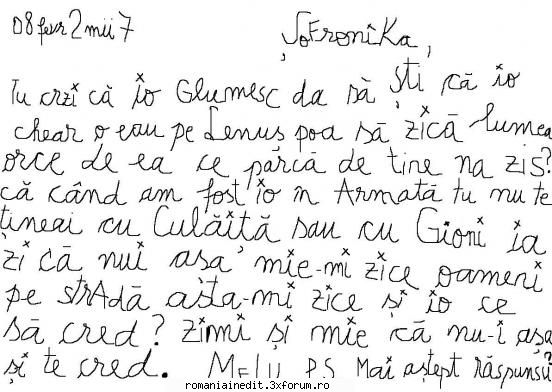 08 febr 2 mii 7
ȘoFroniKa,
Tu crzi că io Glumesc da să ști că io
chear o eau pe Lenuș poa să zică lumea
orce de ea ce părcă de tine na zis?
că când am fost io în Armată tu nu te
țineai cu Culăiță sau cu Gioni ia
zi că nui așa mie-mi zice oameni
pe strAdă asta-mi zice și io ce
să cred? zimi și mie că nu-i așa
și te cred. MeLu P.S Mai aștept răspunsu?
romaniainedit.3xforum.ro